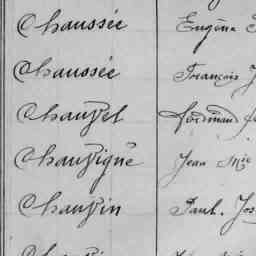 Chaussée Eugène
Chaussée François J
Chauvel Ferdinand
Chauvigné Jean Mie
Chauvin Paul. Jos